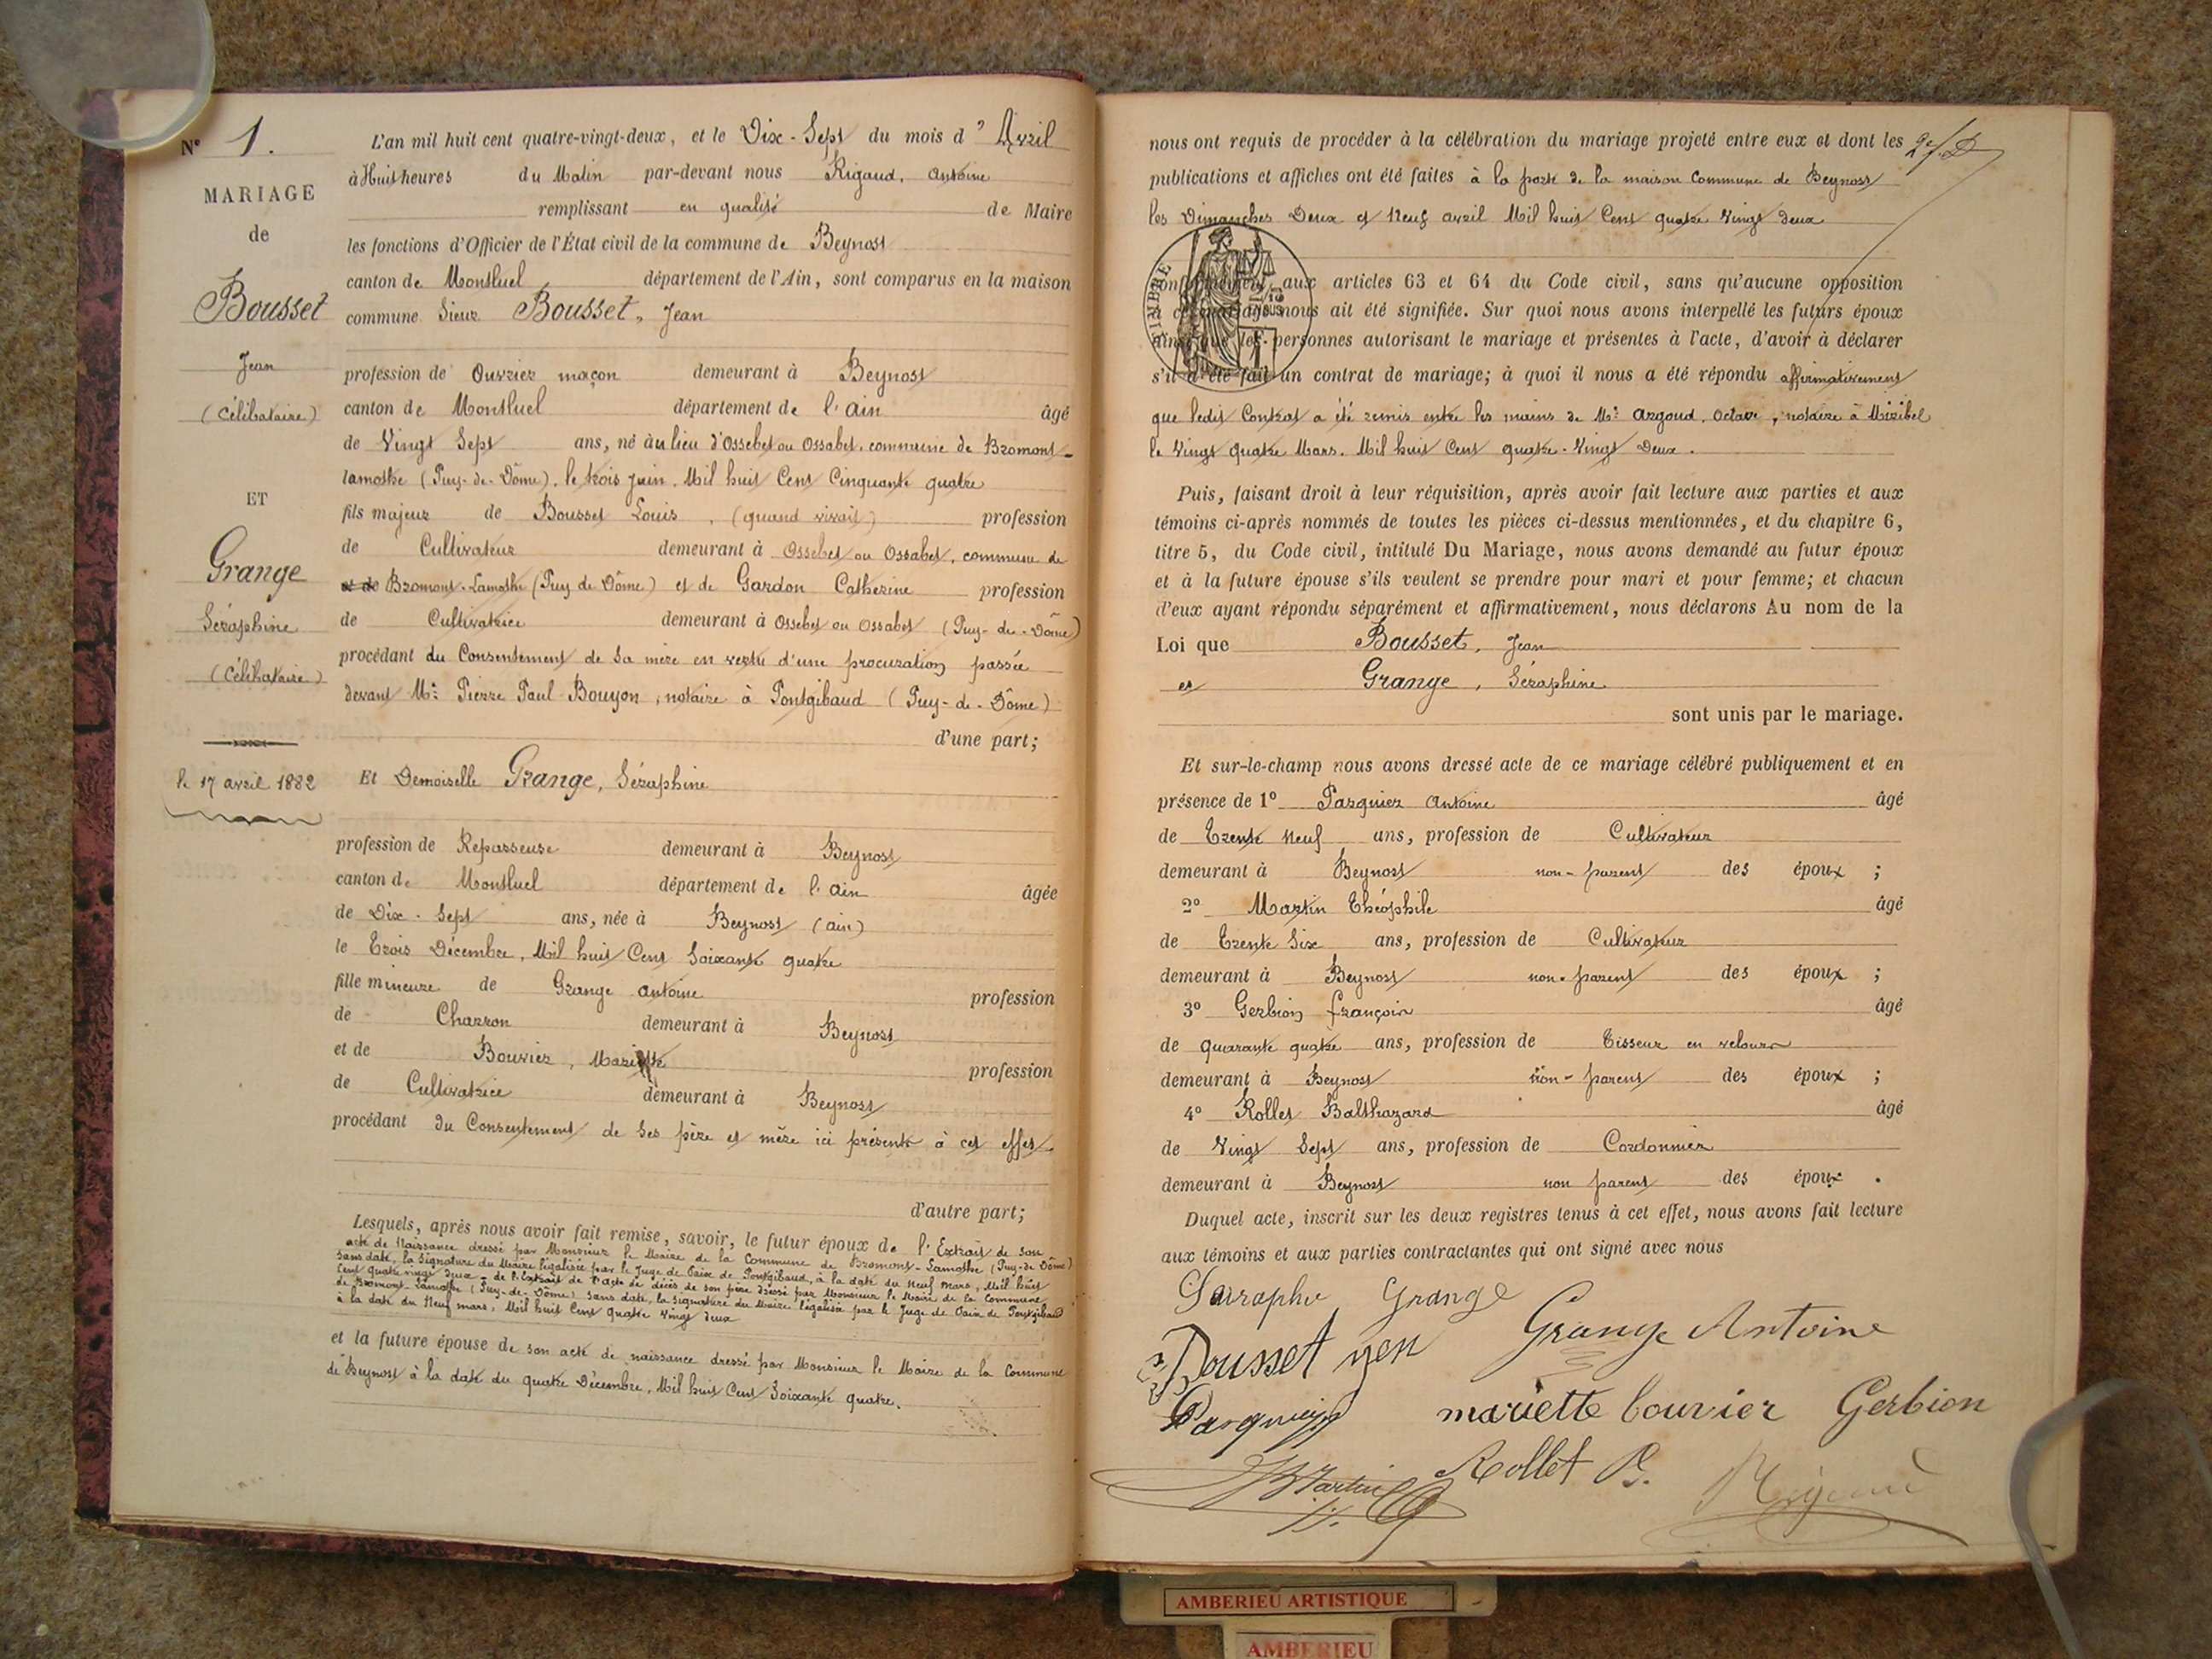 Nº 1.
MARIAGE
de
Bousset
Jean
(Célibataire)
ET
Grange
Séraphine
(Célibataire)
le 17 avril 1882
L'an mil huit cent quatre-vingt-deux, et le Dix-Sept du mois d'Avril
à Huit heures du Matin par-devant nous Rigaud, Antoine
remplissant en qualité de Maire
les fonctions d'Officier de l'État civil de la commune de Beynost
canton de Montluel département de l'Ain, sont comparus en la maison
commune Sieur Bousset, Jean
profession de Ouvrier maçon demeurant à Beynost
canton de Montluel département de l'ain âgé
de Vingt Sept ans, né au lieu d'Ossebet ou Ossabet, commune de Bromont-
lamothe (Puy-de-Dôme), le trois Juin, Mil huit Cent Cinquante quatre
fils majeur de Bousset Louis, (quand vivait) profession
de Cultivateur demeurant à Ossebet ou Ossabet, commune de
et de Bromont-Lamothe (Puy de Dôme) et de Gardon Catherine profession
de Cultivatrice demeurant à Ossebet ou Ossabet (Puy-de-Dôme)
procédant du Consentement de Sa mère en vertu d'une procuration passée
devant Me Pierre Paul Bouyon, notaire à Pontgibaud (Puy-de-Dôme)
d'une part;
Et Demoiselle Grange, Séraphine
profession de Repasseuse demeurant à Beynost
canton de Montluel département de l'ain âgée
de Dix-Sept ans, née à Beynost (ain)
le Trois Décembre, Mil huit Cent Soixante quatre
fille mineure de Grange antoine profession
de Charron demeurant à Beynost
et de Bouvier, Mariette profession
de Cultivatrice demeurant à Beynost
procédant du Consentement de Ses père et mère ici présents à cet effet.
d'autre part;
Lesquels, après nous avoir fait remise, savoir, le futur époux de l'Extrait de son
acte de Naissance dressé par Monsieur le Maire de la Commune de Bromont-Lamothe (Puy-de-Dôme)
Sans date, la Signature du Maire légalisée par le Juge de Paix de Pontgibaud, à la date du neuf mars, Mil huit
Cent quatre vingt deux - de l'Extrait de l'acte de décès de son père dressé par Monsieur le Maire de la Commune
de Bromont-Lamothe (Puy-de-Dôme) Sans date, la signature du Maire légalisée par le Juge de Paix de Pontgibaud
à la date du Neuf mars, Mil huit Cent quatre vingt deux
et la future épouse de son acte de naissance dressé par Monsieur le Maire de la Commune
de Beynost à la date du quatre Décembre, Mil huit Cent Soixante quatre.
nous ont requis de procéder à la célébration du mariage projeté entre eux et dont les
publications et affiches ont été faites à la porte de la maison Commune de Beynost
les Dimanches Deux et Neuf avril Mil huit Cent quatre Vingt deux
TIMBRE
conformément aux articles 63 et 64 du Code civil, sans qu'aucune opposition
à ce mariage nous ait été signifiée. Sur quoi nous avons interpellé les futurs époux
ainsi que les personnes autorisant le mariage et présentes à l'acte, d'avoir à déclarer
s'il a été fait un contrat de mariage; à quoi il nous a été répondu affirmativement
que ledit Contrat a été remis entre les mains de Me Argoud, Octave, notaire à Miribel
le Vingt quatre Mars, Mil huit Cent quatre-Vingt Deux.
Puis, faisant droit à leur réquisition, après avoir fait lecture aux parties et aux
témoins ci-après nommés de toutes les pièces ci-dessus mentionnées, et du chapitre 6,
titre 5, du Code civil, intitulé Du Mariage, nous avons demandé au futur époux
et à la future épouse s'ils veulent se prendre pour mari et pour femme; et chacun
d'eux ayant répondu séparément et affirmativement, nous déclarons Au nom de la
Loi que Bousset, Jean
et Grange, Séraphine
sont unis par le mariage.
Et sur-le-champ nous avons dressé acte de ce mariage célébré publiquement et en
présence de 1º Parguiez Antoine âgé
de Trente Neuf ans, profession de Cultivateur
demeurant à Beynost non-parent des époux ;
2º Martin Théophile âgé
de Trente Six ans, profession de Cultivateur
demeurant à Beynost non-parent des époux ;
3º Gerbion François âgé
de quarante quatre ans, profession de Tisseur en velours
demeurant à Beynost non-parent des époux ;
4º Rollet Balthazard âgé
de Vingt Sept ans, profession de Cordonnier
demeurant à Beynost non parent des époux.
Duquel acte, inscrit sur les deux registres tenus à cet effet, nous avons fait lecture
aux témoins et aux parties contractantes qui ont signé avec nous
Grange
Bousset Grange Antoine
mariette bouvier Gerbion
Martin Rollet B. Rigaud
AMBERIEU ARTISTIQUE
AMBERIEU